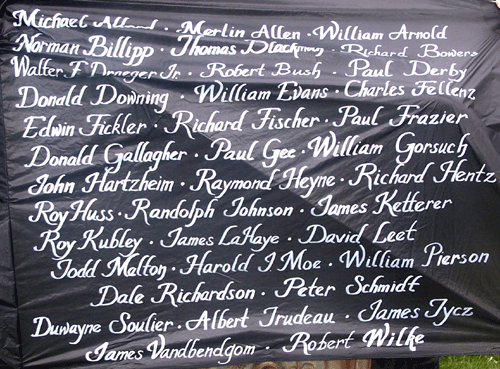 Michael Allard · Merlin Allen · William Arnold
Norman Billipp · Thomas Blackman · Richard Bowers
Walter F Draeger Jr. · Robert Bush · Paul Derby
Donald Downing · William Evans · Charles Fellenz
Edwin Fickler · Richard Fischer · Paul Frazier
Donald Gallagher · Paul Gee · William Gorsuch
John Hartzheim · Raymond Heyne · Richard Hentz
Roy Huss · Randolph Johnson · James Ketterer
Roy Kubley · James LaHaye · David Leet
Todd Melton · Harold J Moe · William Pierson
Dale Richardson · Peter Schmidt
Duwayne Soulier · Albert Trudeau · James Tycz
James Vandbendgom · Robert Wilke